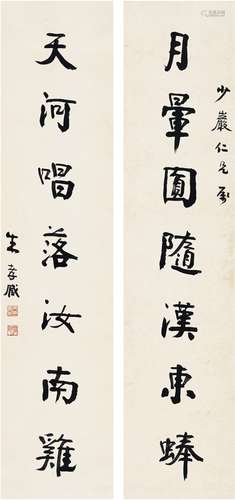 少巖仁兄屬
月暈圓隨漢東蜯
天河唱落汝南雞
朱孝臧